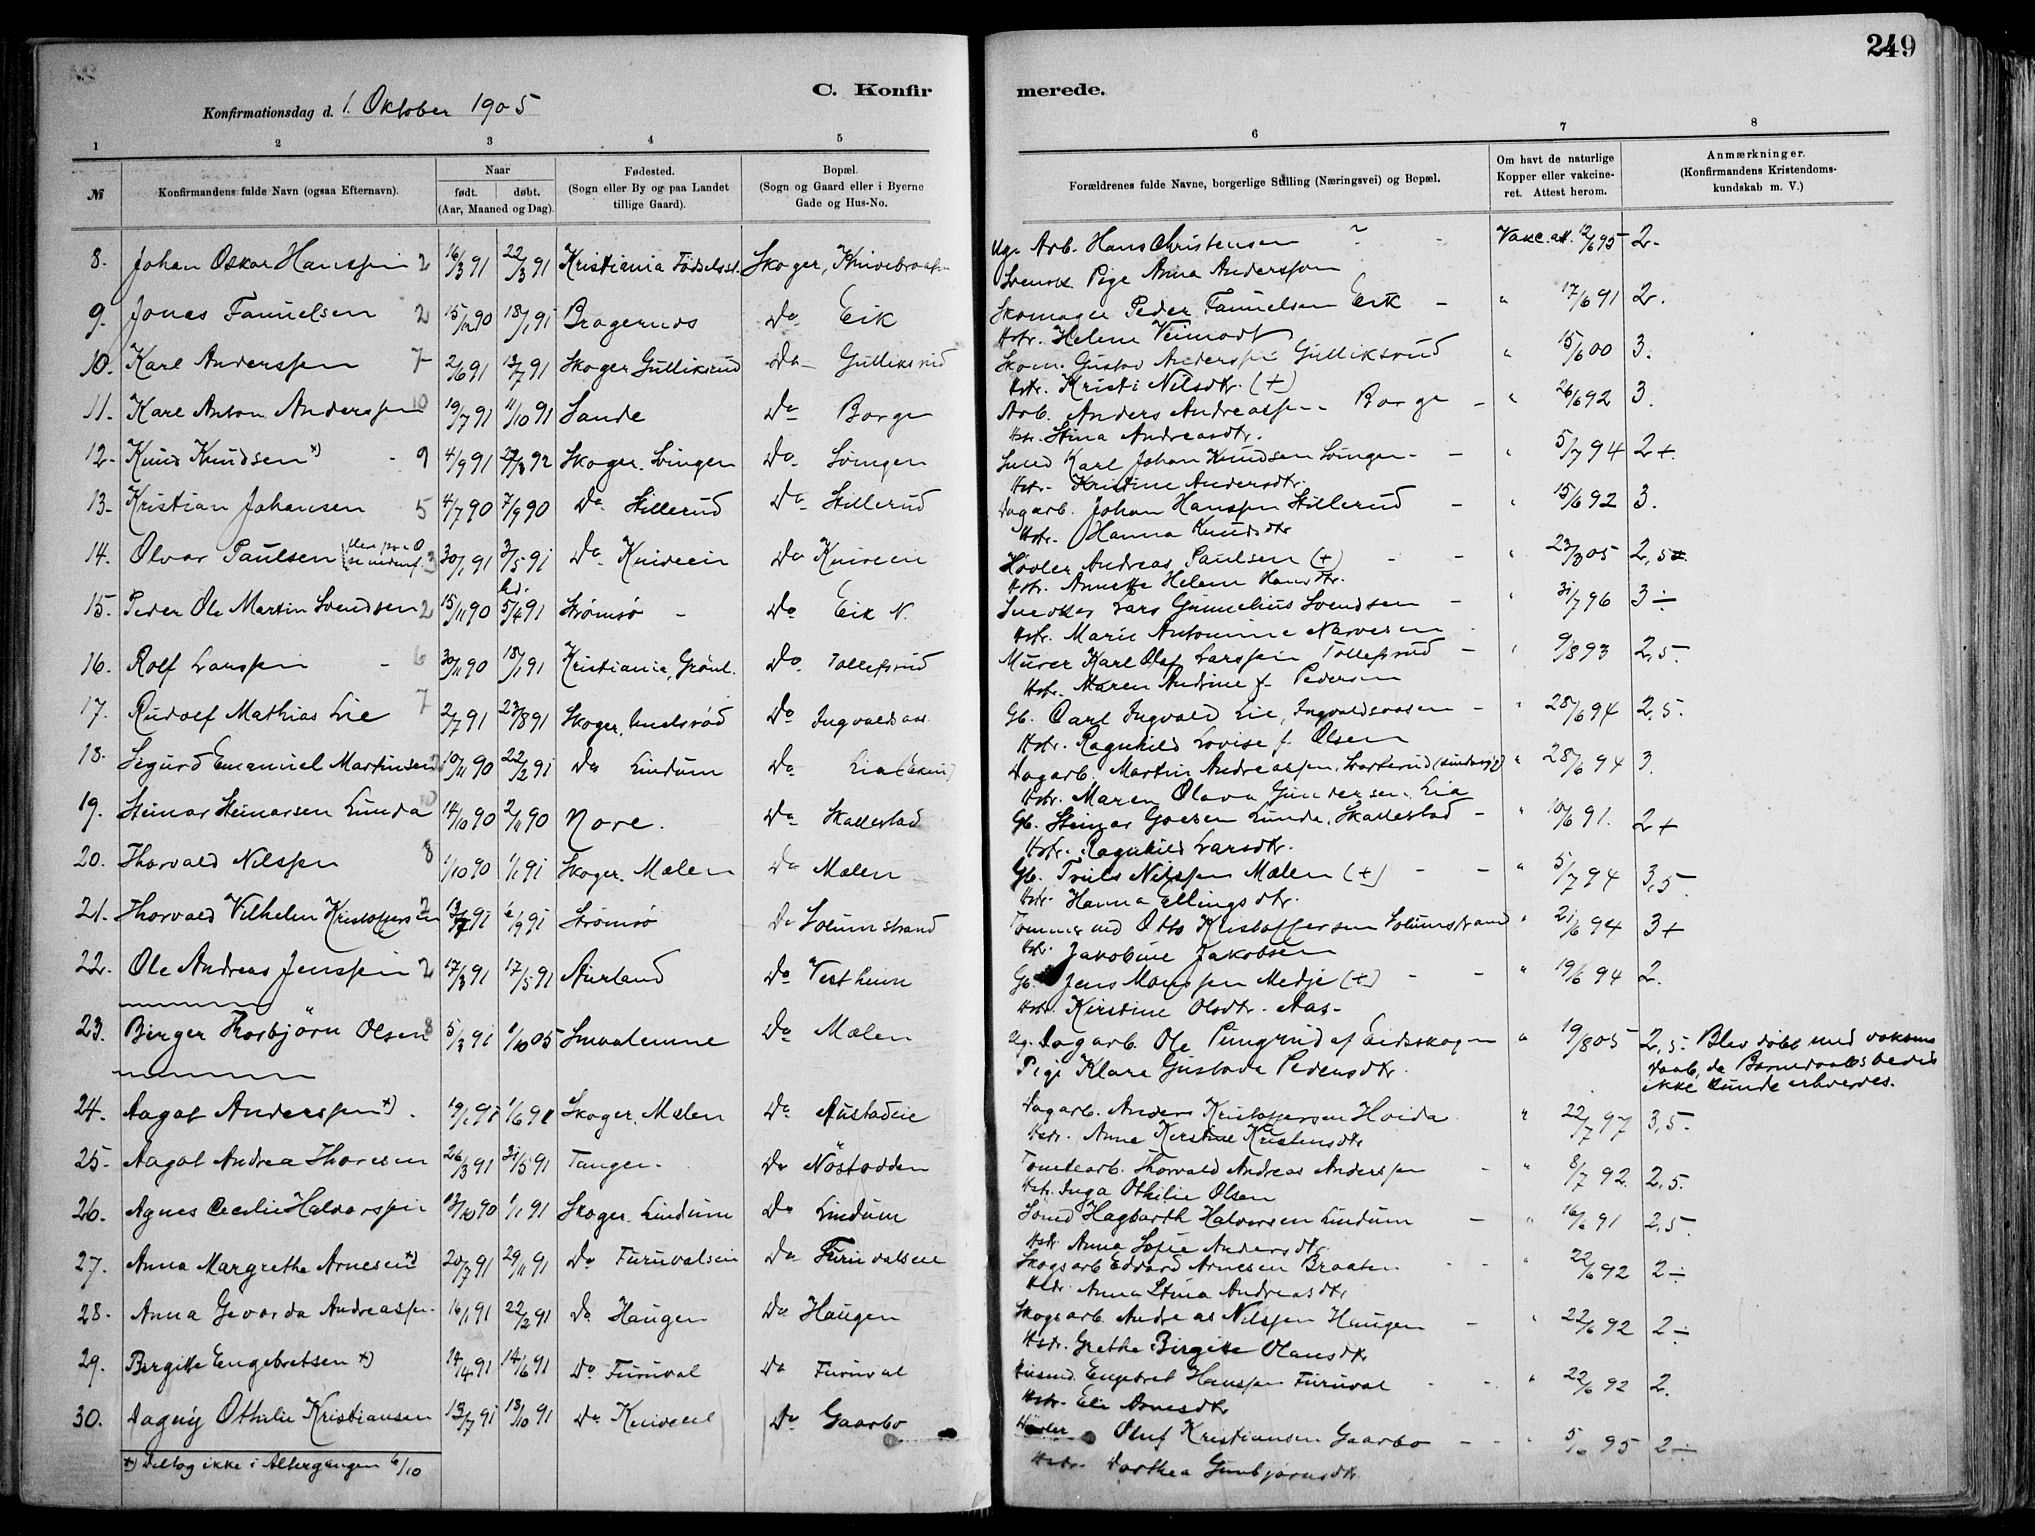 249
C. Konfirmerede.
Konfirmationsdag d. 1. Oktober 1905
1 2 3 4 5 6 7 8
№ Konfirmandens fulde Navn (ogsaa Efternavn). Naar født. døbt. (Aar, Maaned og Dag). Fødested. (Sogn eller By og paa Landet tillige Gaard). Bopæl. (Sogn og Gaard eller i Byerne Gade og Hus-No. Forældrenes fulde Navne, borgerlige Stilling (Næringsvei) og Bopæl. Om havt de naturlige Kopper eller vakcineret. Attest herom. Anmærkninger. (Konfirmandens Kristendomskundskab m. V.)
8. Johan Oskar Hanssen 2 16/3 91 22/3 91 Kristiania Födselsst. Skoger, Ug. Arb. Hans Christensen ? - Vakc.att. 12/6 95 2-
Svensk Pige Anna Anderssen
9. Jonas Fanuelsen 2 15/12 90 18/1 91 Bragernes Do Eik Skomager Peder Fanuelsen Eik - " 17/6 91 2.
Hstr. Helene Veimodt
10. Karl Anderssen 7 2/6 91 12/7 91 Skoger Gulliksrud Do Gulliksrud Skom. Gustav Anderssen Gulliksrud " 15/6 00 3.
Hstr. Kristi Nilsdtr. (+)
11. Karl Anton Anderssen 10 19/7 91 11/10 91 Sande Do Borge Arb. Anders Andreassen Borge - " 26/6 92 3.
Hstr. Stina Andreasdtr.
12. Knud Knudsen +) - 9 4/9 91 27/3 92 Skoger. Svingen Do Svingen Smed Karl Johan Knudsen Svingen - - " 5/7 94 2+.
Hstr. Kristine Andersdtr.
13. Kristian Johansen 5 4/7 90 7/9 90 Do Stillerud Do Stillerud Dagarb. Johan Hanssen Stillerud - " 15/6 92 3.
Hstr. Hanna Knudsdtr
14. Olvar Paulsen 3 30/1 91 3/5 91 Do Kniveein Do Kniveen Høvler Andreas Paulsen (+) - - " 23/3 05 2,5
Hstr. Annette Helene Hansdtr.
15. Peder Ole Martin Svendsen 2 15/11 90 hd. 5/4 91 Strømsø - Do Eik N. Snedker Lars Gunnelius Svendsen - " 31/7 96 3÷
Hstr. Marie Antonine Narvesen
16. Rolf Larssen - 6 30/11 90 18/1 91 Kristiania, Grönl. Do Tollefsrud Murer Karl Olaf Larssen Tollefsrud - " 9/8 93 2,5.
Hstr. Maren Andrine f. Pedersen
17. Rudolf Mathias Lie 7 2/7 91 23/8 91 Skoger, Do Ingvaldsaas Gb. Carl Ingvald Lie, Ingvaldsaasen - " 28/6 94 2,5.
Hstr. Ragnhild Lovise f. Olsen
18. Sigurd Emanuel Martinsen 10/11 90 22/2 91 Do Lindum Do Lia Dagarb. Martin Andreassen. " 28/6 94 3.
Hstr. Maren Olava Gundersen. Lia
19. Steinar Steinarsen Lunda 10 14/10 90 2/11 90 Nore. Do Skallestad Gb. Steinar Lunde, Skallestad - " 10/6 91. 2+
Hstr. Ragnhild Larsdtr.
20. Thorvald Nilssen 8 1/10 90 1/1 91 Skoger. Mælen Do Mælen Gb. Truls Nilssen Mælen (+) - - " 5/7 94 3,5
Hstr. Hanna Ellingsdtr.
21. Thorvald Vilhelm Kristoffersen 2 13/7 91 6/9 91 Strømsø Do Solumstrand Tømmermd Otto Kristoffersen Solumstrand " 21/6 94 3+
Hstr. Jakobine Jakobsen
22. Ole Andreas Jenssen 2 17/3 91 17/5 91 Aurland Do Vestheim Gb. Jens Monssen Medje (+) - - " 19/6 94 2.
Hstr. Kirstine Olsdtr. Aas-
23. Birger Thorbjörn Olsen 8 5/3 91 1/10 05 Smaalenene Do Mælen Ug. Dagarb. Ole Pungrud af Eidsskogen " 19/8 05 2,5. Blev döbt med voksens
Pige Klara Gustava Pedersdtr. daab, da Barnedaabsbevis
ikke kunde erhverves.
24. Aagot Anderssen +). 19/1 91 1/6 91 Skoger. Mælen Do Austadeie Dagarb. Anders Kristoffersen Hoida " 22/7 97 3,5.
Hstr. Anne Kirstine Kristensdtr
25. Aagot Andrea Thoresen 26/3 91 31/5 91 Tangen. Do Nöstodden Tomtearb. Thorvald Andreas Anderssen - " 8/7 92. 2,5.
Hstr. Inga Othilie Olsen
26. Agnes Cecilie Halvorssen 12/10 90 1/1 91 Skoger. Lindum Do Lindum Smed Hagbarth Halvorsen Lindum - " 16/6 91 2,5
Hstr. Anna Sofie Andersdtr.
27. Anna Margrethe Arnesen +) 20/7 91 29/11 91 Do Furuvalseie Do Furuvalseie Skogsarb Edvard Arnesen Braaten - - " 22/6 92 2÷
Hstr. Anna Stina Andreasdtr
28. Anna Gevarda Andreassen. 16/1 91 22/2 91 Do Haugen Do Haugen Skogsarb Andreas Nilssen Haugen - " 22/6 92 2÷
Hstr. Grethe Birgitte Olausdtr
29. Birgitte Engebretsen +) 14/4 91 14/6 91 Do Furuval Do Furuval Husmd. Engebret Hanssen Furuval - - " 22/6 92 2.
Hstr. Eli Arnesdtr
30. Dagny Othilie Kristiansen 13/7 91 13/10 91 Do Kniveeie Do Gaarbo Høvler Oluf Kristiansen Gaarbo - - " 5/6 95 2÷
Hstr. Dorthea Gunbjørnsdtr.
+) Deltog ikke i Altergangen 6/10